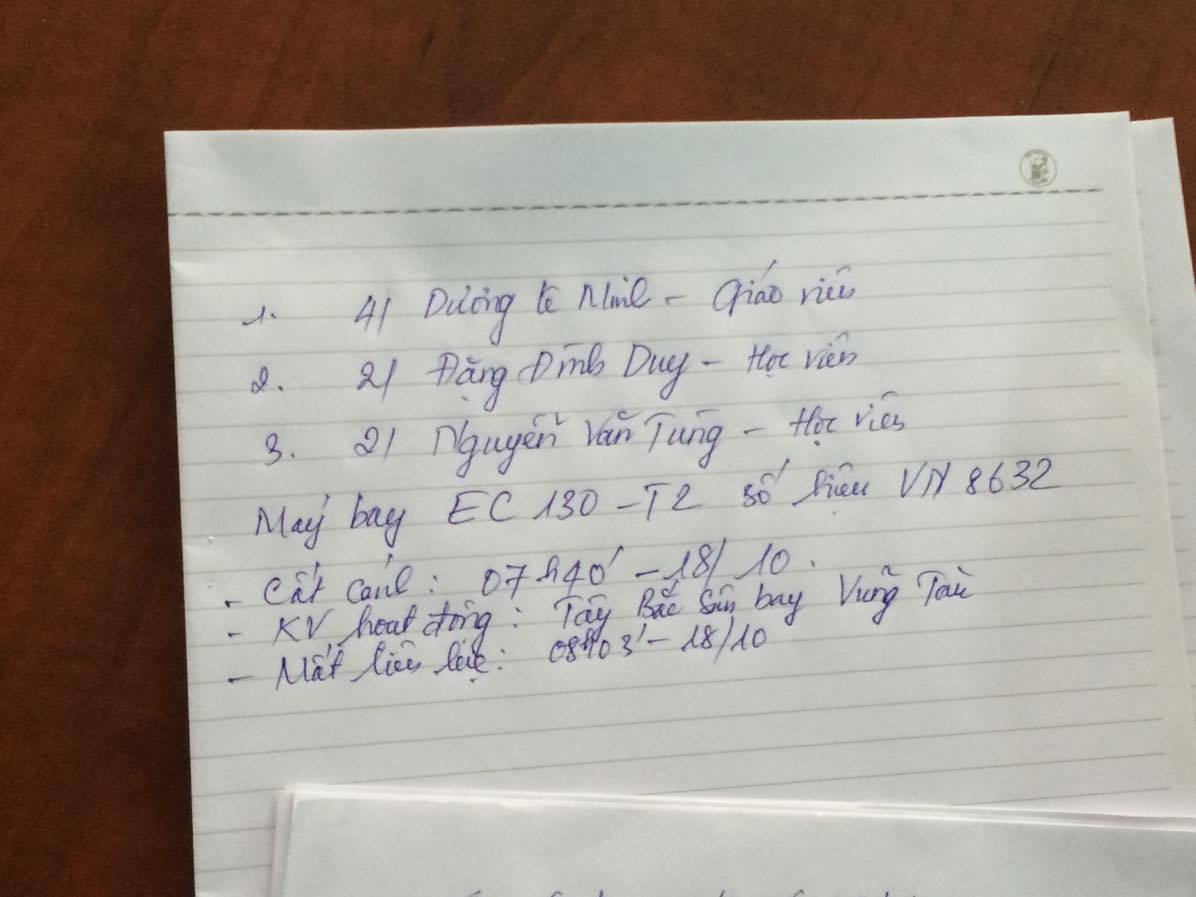 1. 4/ Dương Lê Minh - Giáo viên
2. 2/ Đặng Đình Duy - Học viên
3. 2/ Nguyễn Văn Tùng - Học viên
Máy bay EC 130 - T2 số hiệu VN 8632
- Cất cánh: 07h40' - 18/10.
- KV hoạt động: Tây Bắc Sân bay Vũng Tàu
- Mất liên lạc: 08h03' - 18/10